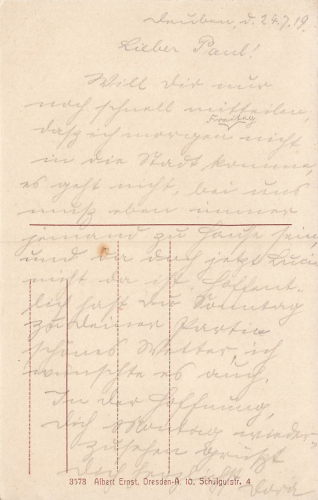 Deuben, d. 24.7.19.
Lieber Paul!
Will Dir nur
noch schnell mitteilen,
Freitag
daß ich morgen nicht
in die Stadt komme,
es geht nicht, bei uns
muß eben immer
jemand zu Hause sein,
und da doch jetzt Lucie
nicht da ist. Hoffent-
lich hast Du Sonntag
zu Deiner Partie
schönes Wetter, ich
wünschte es auch.
In der Hoffnung,
Dich Montag wieder-
zusehen grüßt
Dich herzlichst Dora
3173 Albert Ernst, Dresden-A. 10, Schulgutstr. 4